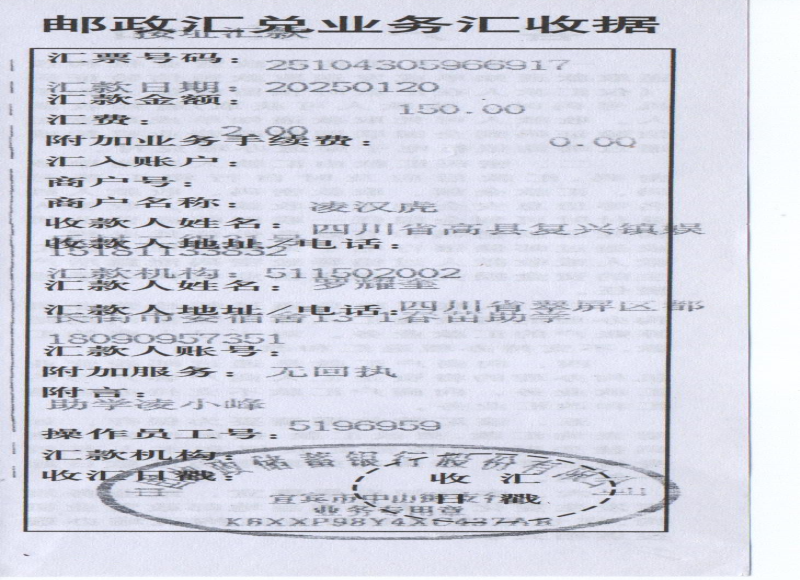 邮政汇兑业务汇收据
按址汇款
汇票号码: 25104305966917
汇款日期: 20250120
汇款金额: 150.00
汇费: 2.00
附加业务手续费: 0.00
汇入账户:
商户号:
商户名称:
收款人姓名: 凌汉虎
收款人地址/电话: 四川省高县复兴镇
15181133832
汇款机构: 511502002
汇款人姓名: 罗耀奎
汇款人地址/电话: 四川省翠屏区都
长街市委宿舍13-1春苗助学
18090957351
汇款人账号:
附加服务: 无回执
附言:
助学凌小峰
操作员工号: 5196959
汇款机构:
收汇日戳:
收 汇
日 戳
业务专用章